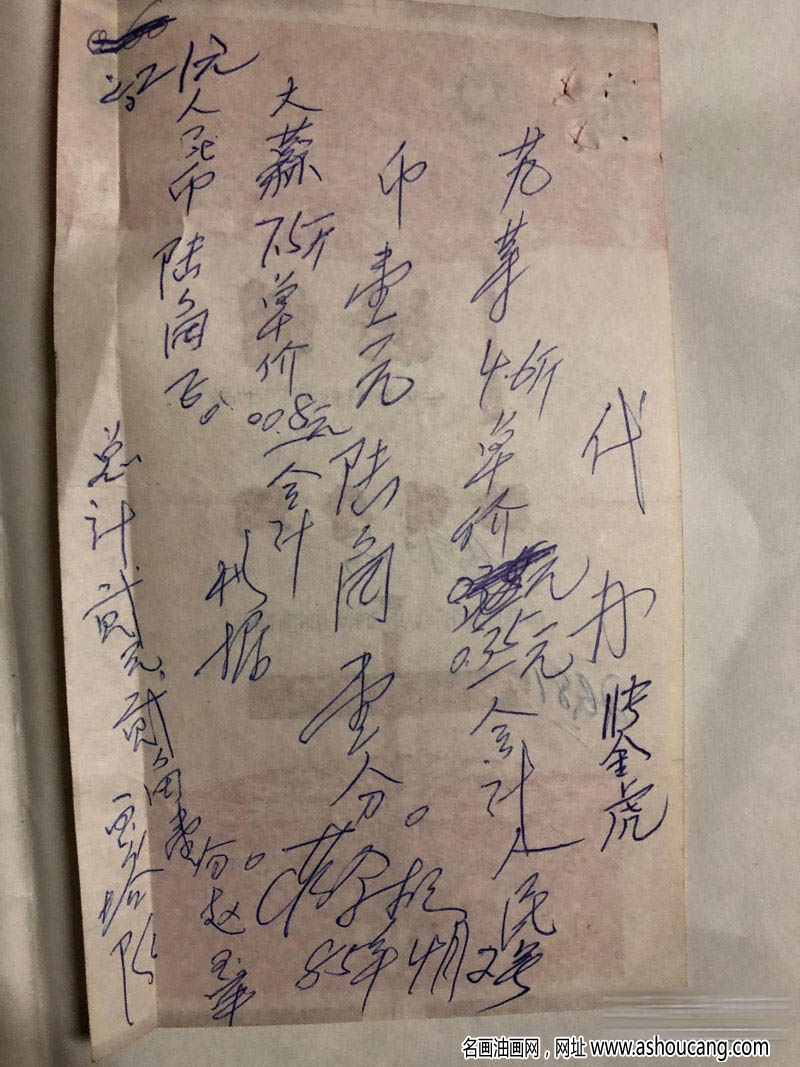 代办
金虎
芫荽4.6斤单价0.35元 合计人民
币壹元陆角壹分。
大蒜7.5斤单价00.8元 合计
人民币陆角正。
总计贰元贰角壹分。
据
赵
85年4月2号
名画油画网，网址 www.ashoucang.com